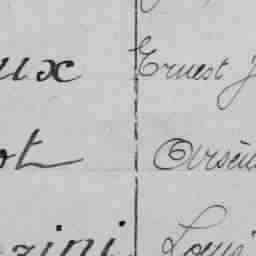 ux Ernest J
ot Arsèn
rini Louis